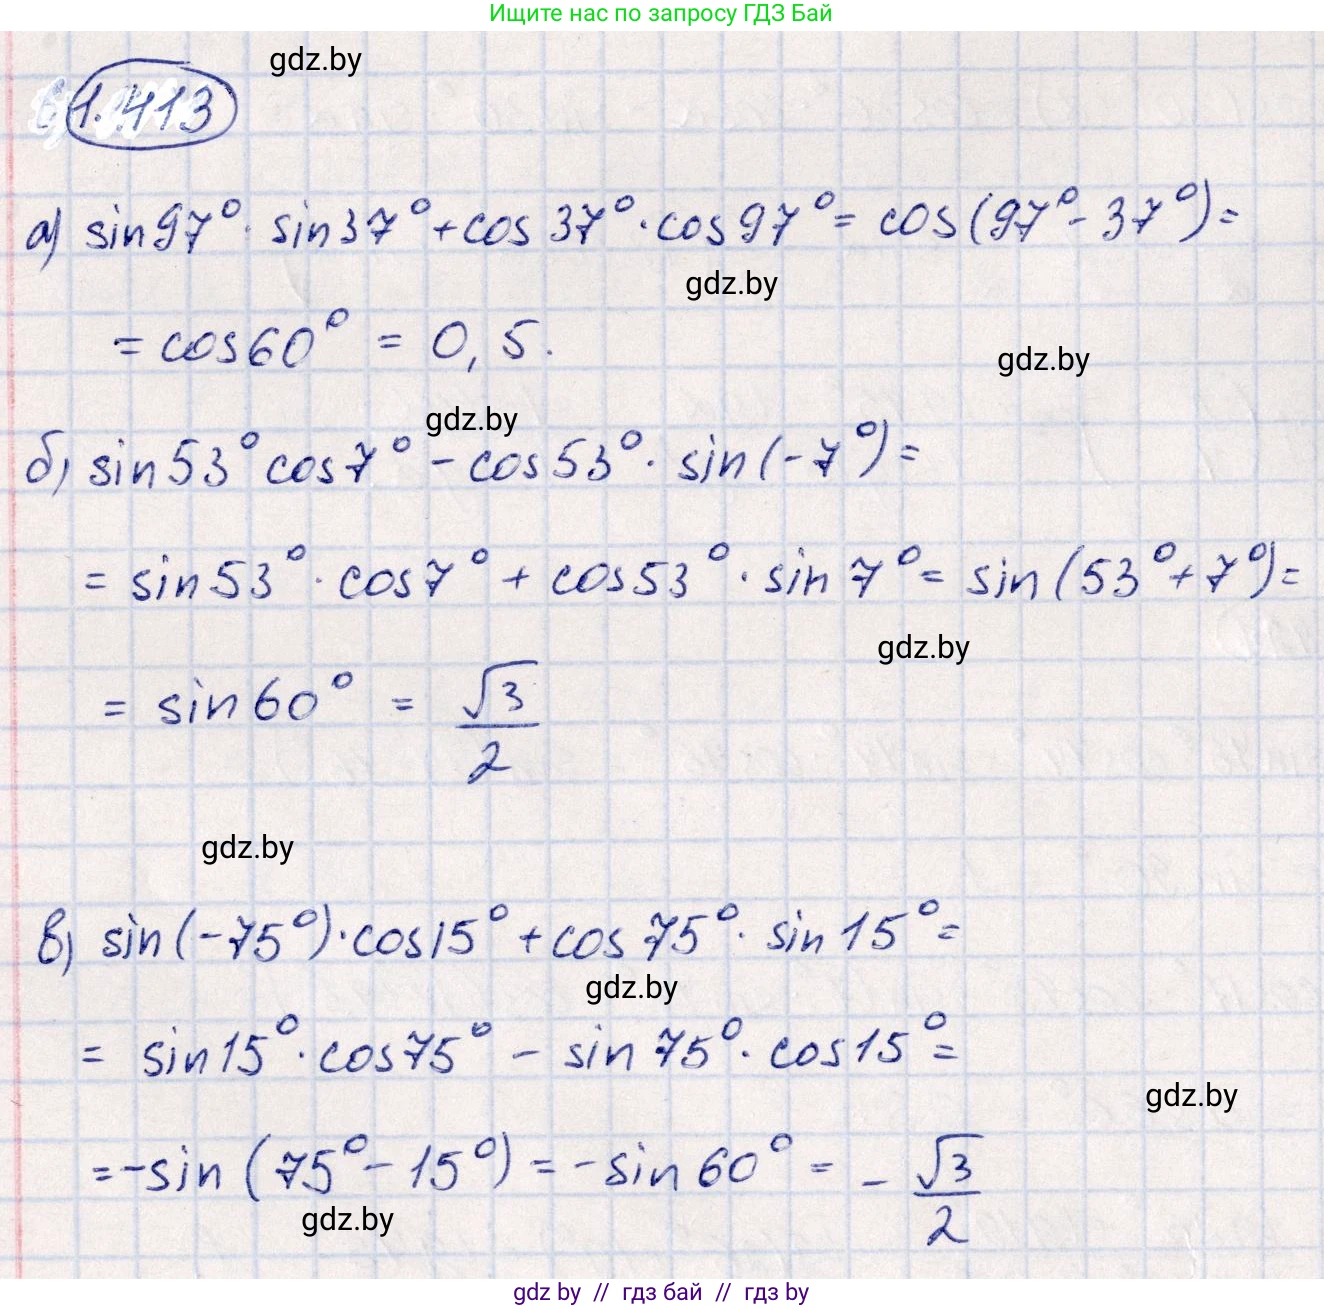 Ищите нас по запросу ГДЗ Бай
gdz.by
1.413
а) sin97° · sin37° + cos37° · cos97° = cos(97° - 37°) =
gdz.by
= cos60° = 0,5.
gdz.by
gdz.by
б) sin53° cos7° - cos53° · sin(-7°) =
= sin53° · cos7° + cos53° · sin7° = sin(53° + 7°) =
gdz.by
= sin60° = √3/2
gdz.by
в) sin(-75°) · cos15° + cos75° · sin15° =
gdz.by
= sin15° · cos75° - sin75° · cos15° =
gdz.by
= -sin(75° - 15°) = -sin60° = -√3/2
gdz.by
gdz by // гдз бай // гдз by